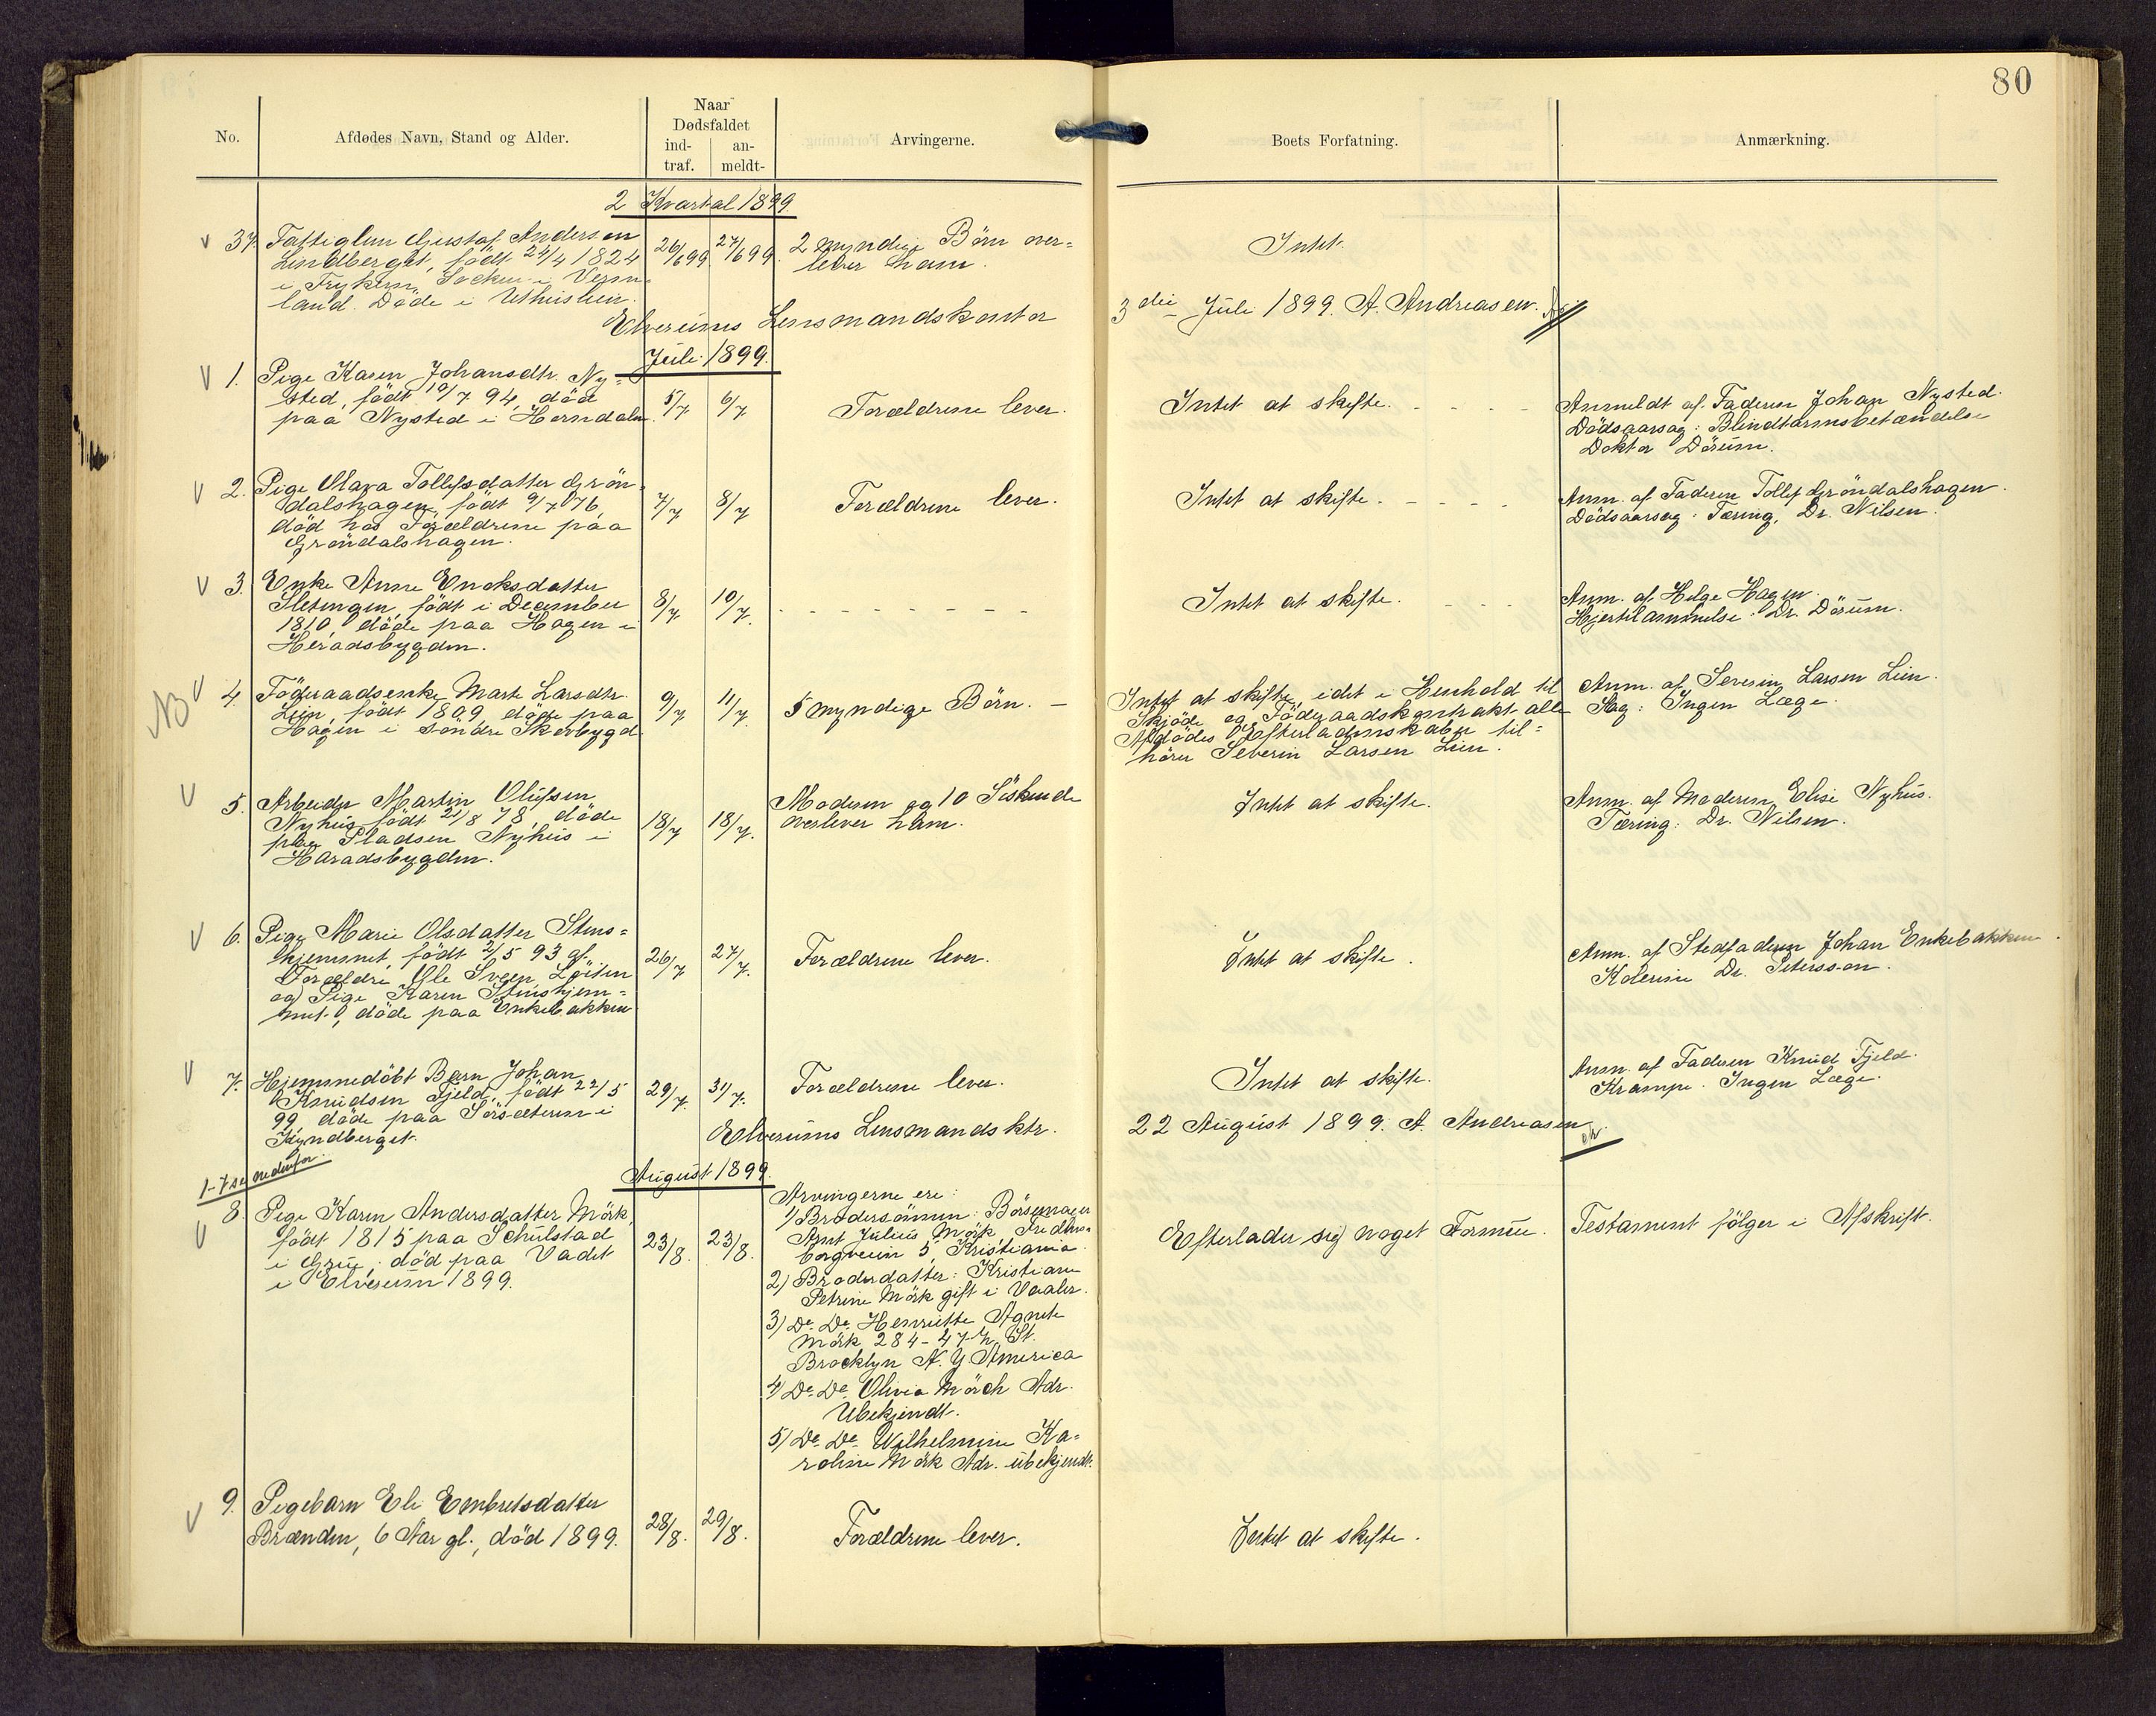 80
No.
Afdødes Navn, Stand og Alder.
Naar
Dødsfaldet
ind-
traf.
an-
meldt-
Arvingerne.
Boets Forfatning.
Anmærkning.
2 Kvartal 1899
37. Fattiglem Gustaf Andersen
Lindberget, født 24/4 1824
i Tryksen Socken i Verm-
land. Døde i
26/6 99. 27/6 99.
2 myndige Børn over-
lever ham.
Intet.
Elverums Lensmandskontor 3die Juli 1899. A. Andreasen.
Juli 1899.
1. Pige Karen Johansdtr. Ny-
sted, født 10/7 94, døde
paa Nysted i Herndalen.
5/7 6/7
Forældrene lever.
Intet at skifte.
Anmeldt af Faderen Johan Nysted.
Dødsaarsag: Blindtarmsbetændelse
Doktor Dørum.
2. Pige Mara Tollefsdatter Grøn-
dalshagen, født 9/7 76,
død hos Forældrene paa
Grøndalshagen.
7/7 8/7
Forældrene lever.
Intet at skifte.
Anm. af Faderen Tollef Grøndalshagen.
Dødsaarsag: Tæring, Dr. Nilsen.
3. Enke Anne Enoksdatter
Sletingen, født i December
1810, døde paa Hagen i
Heradsbygden.
8/7 10/7.
Intet at skifte.
Anm. af Helge Hagen.
Hjertelammelse: Dr. Dørum.
NB
4. Føderaadsenke Marte Larsdtr.
Lien, født 1809, døde paa
Hagen i Søndre Skovbygd
9/7 11/7.
5 myndige Børn. -
Intet at skifte, idet i Henhold til
Skjøde og Føderaadskontrakt alle
Afdødes Efterladenskaber til-
hører Severin Larsen Lien.
Anm. af Severin Larsen Lien.
Slag: Ingen Læge.
5. Arbeider Martin Olufsen
Nyhus, født 21/8 78, døde
paa Pladsen Nyhus i
Haradsbygden.
18/7 18/7.
Moderen og 10 Søskende
overlever ham.
Intet at skifte.
Anm. af Moderen Elise Nyhus.
Tæring: Dr. Nilsen.
6. Pige Marie Olsdatter Stens-
hjemmet, født 2/5 93 af
Forældre Ole Sveen Løiten
og Pige Karen Stenshjem-
met, døde paa Enkebakken
26/7 27/7.
Forældrene lever.
Intet at skifte.
Anm. af Stedfaderen Johan Enkebakken.
Kolerine Dr. Petersson.
7. Hjemmedøbt Barn Johan
Knudsen Fjeld, født 22/5
99, døde paa Sørsæteren i
Kyndberget.
29/7. 31/7.
Forældrene lever.
Intet at skifte.
Anm. af Faderen Knud Fjeld.
Krampe. Ingen Læge.
Elverums Lensmandsktr. 22 August 1899. A. Andreasen
1-7 se nedenfor.
August 1899.
8. Pige Karen Andersdatter Mørk,
født 1815 paa Schulstad
i Grue; død paa Vadet
i Elverum 1899.
23/8. 23/8.
Arvingerne ere:
1) Brodersønnen: Børsemager
Arnt Julius Mørk, Fredens-
borgveien 5, Kristiania.
2) Broderdatter: Kristiane
Petrine Mørk gift i Vaaler.
3) Do. Do. Henriette Agnete
Mørk 284-47th St.
Brocklyn N. Y. America
4) Do. Do. Olivia Mörch Adr.
Ubekjendt.
5) Do. Do. Wilhelmine Ka-
roline Mørk Adr. ubekjendt.
Efterlader sig noget Formue.
Testament følger i Afskrift.
9. Pigebarn Eli Embretsdatter
Brænden, 6 Aar gl., død 1899.
28/8. 29/8.
Forældrene lever.
Intet at skifte.